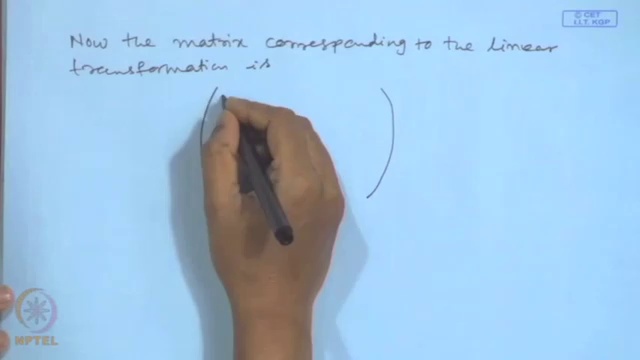 © CET
I.I.T. KGP
Now the matrix corresponding to the linear
transformation is
NPTEL